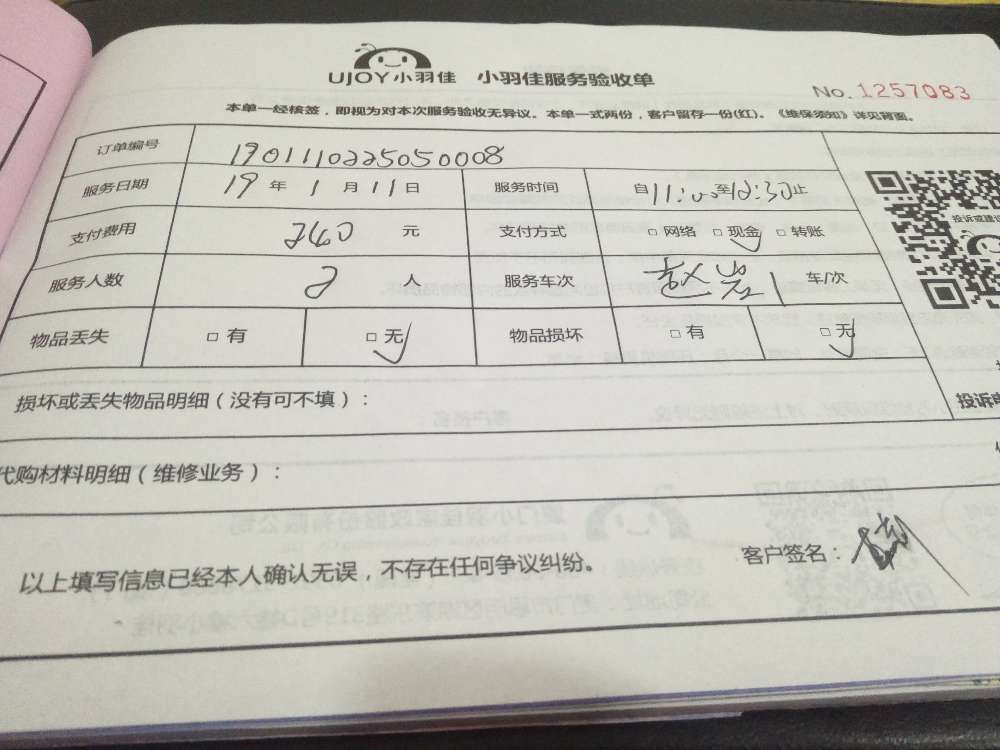 UJOY小羽佳 小羽佳服务验收单
No. 1257083
本单一经核签，即视为对本次服务验收无异议。本单一式两份，客户留存一份(红)。《维保须知》详见背面。
订单编号 1901110225050008
服务日期 19 年 1 月 11 日 服务时间 自 11:00 至 12:30 止
支付费用 240 元 支付方式 □ 网络 □ 现金 ✓ □ 转账
服务人数 2 人 服务车次 1 车/次
物品丢失 □ 有 □ 无 ✓ 物品损坏 □ 有 □ 无 ✓
投诉或建议
损坏或丢失物品明细（没有可不填）：
投诉
代购材料明细（维修业务）：
以上填写信息已经本人确认无误，不存在任何争议纠纷。 客户签名：